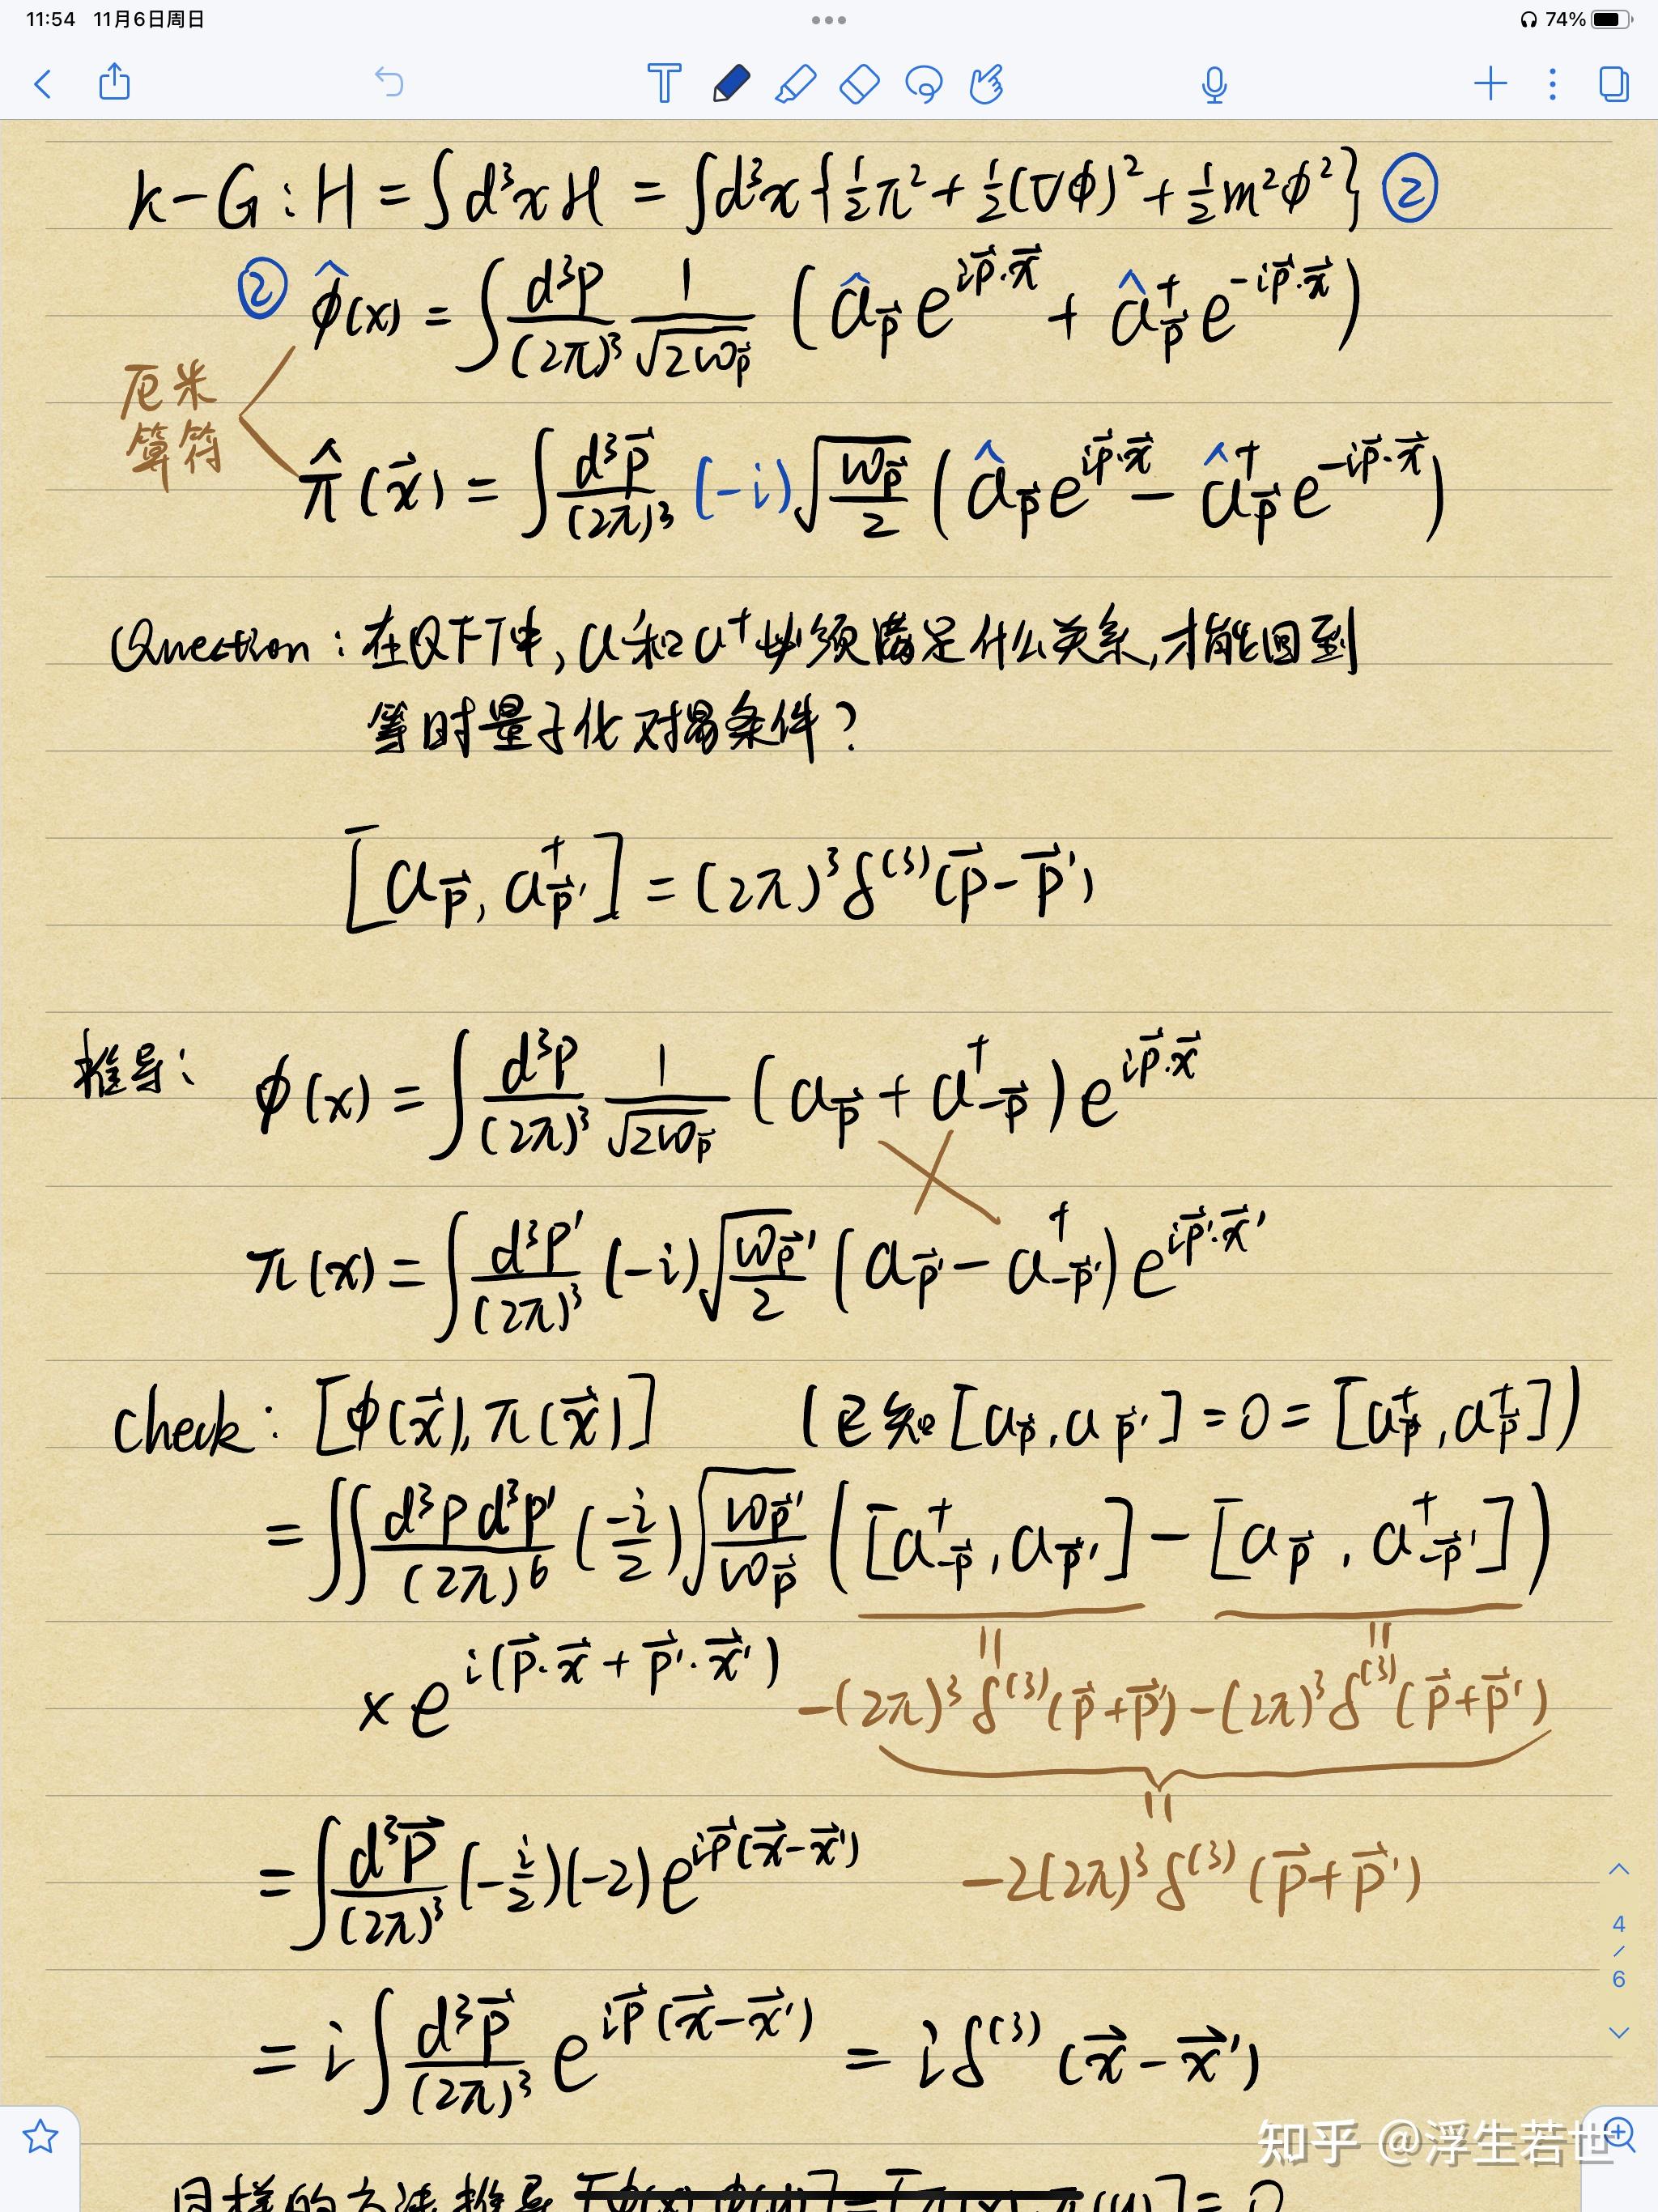 11:54 11月6日周日
74%
K-G: H = ∫d³x ℋ = ∫d³x {½π² + ½(∇φ)² + ½m²φ²} ②
② φ̂(x) = ∫ d³p/(2π)³ 1/√(2ω_p⃗) (â_p⃗ e^{ip⃗·x⃗} + â†_p⃗ e^{-ip⃗·x⃗})
厄米
算符
π̂(x⃗) = ∫ d³p⃗/(2π)³ (-i) √(ω_p⃗/2) (â_p⃗ e^{ip⃗·x⃗} - â†_p⃗ e^{-ip⃗·x⃗})
Question: 在QFT中, a和a†必须满足什么关系,才能回到
等时量子化对易条件?
[a_p⃗, a†_p⃗'] = (2π)³ δ⁽³⁾(p⃗-p⃗')
推导: φ(x) = ∫ d³p/(2π)³ 1/√(2ω_p⃗) (a_p⃗ + a†_-p⃗) e^{ip⃗·x⃗}
π(x) = ∫ d³p'/(2π)³ (-i) √(ω_p⃗'/2) (a_p⃗' - a†_-p⃗') e^{ip⃗'·x⃗'}
Check: [φ(x⃗), π(x⃗)] (已知[a_p⃗, a_p⃗'] = 0 = [a†_p⃗, a†_p⃗])
= ∬ d³p d³p'/(2π)⁶ (-i/2) √(ω_p⃗'/ω_p⃗) ([a†_-p⃗, a_p⃗'] - [a_p⃗, a†_-p⃗'])
× e^{i(p⃗·x⃗ + p⃗'·x⃗')} -(2π)³ δ⁽³⁾(p⃗+p⃗') -(2π)³ δ⁽³⁾(p⃗+p⃗')
= ∫ d³p⃗/(2π)³ (-i/2)(-2) e^{ip⃗(x⃗-x⃗')} -2(2π)³ δ⁽³⁾(p⃗+p⃗')
= i ∫ d³p⃗/(2π)³ e^{ip⃗(x⃗-x⃗')} = i δ⁽³⁾(x⃗-x⃗')
4
/
6
知乎 @浮生若世
同样的方法推导